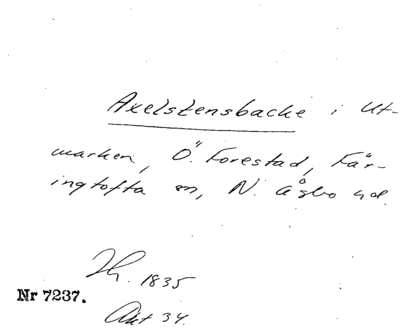 Axelstensbacke i Ut-
marken, Ö. Forestad, Fär-
ingtofta sn, N. Åsbo hd.
Jh. 1835
Nr 7237.
Akt 34.